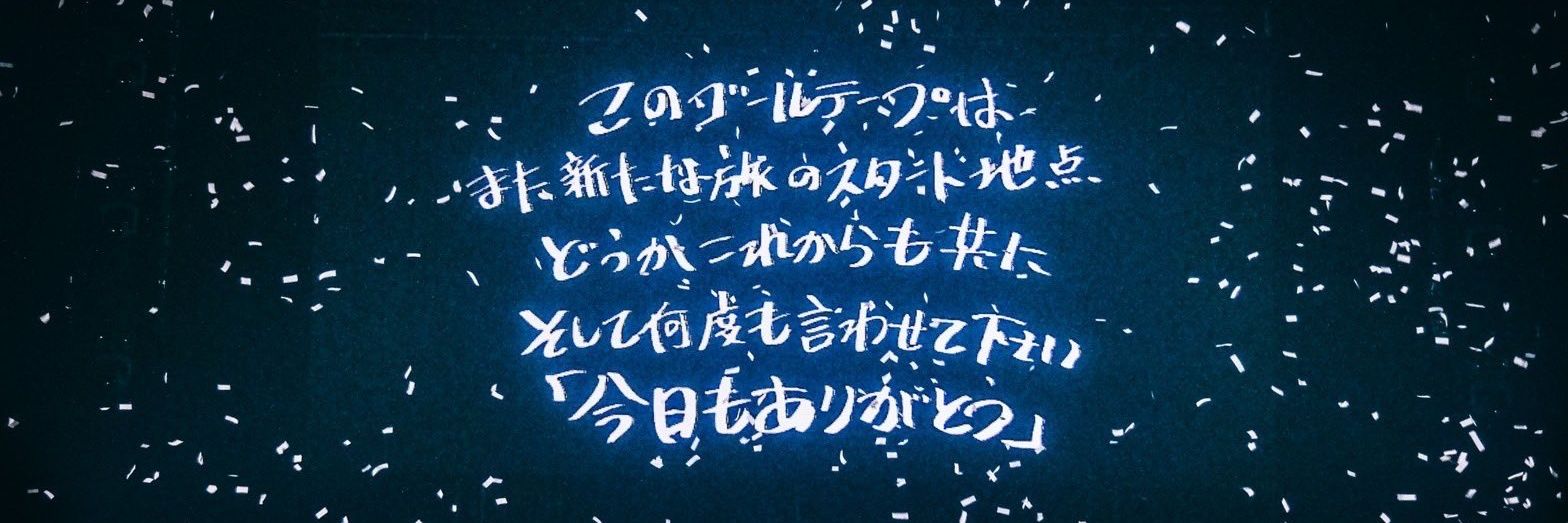 このゴールテープは
また新たな旅のスタート地点
どうかこれからも共に
そして何度も言わせて下さい
「今日もありがとう」